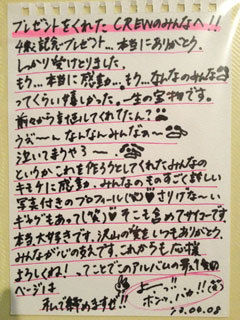 プレゼントをくれたCREWのみんなへ!!
4周年記念プレゼント…本当にありがとう。
しっかり受けとりました。
もう…本当に感動…もう…なんなのみんな
ってくらい嬉しかった。一生の宝物です。
前々から準備してくれてたん?
うぅ〜なんなんみんなぁ〜
泣いてまうやろ〜
というかこれを作ろうとしてくれたみんなの
キモチに感動。みんなのものすごく詳しい
写真付きのプロフィール(笑)♥さりげな〜い
ギャグもあって!(笑)♥そこも含めてサイコーです
本当大好きです。沢山の愛をいつもありがとう。
みんなが心の支えです。これからも応援
よろしくね!ってことでこのアルバムの最後の
ページは
私で締めますぜ!!
よーっ
ポンッ、バッ!!